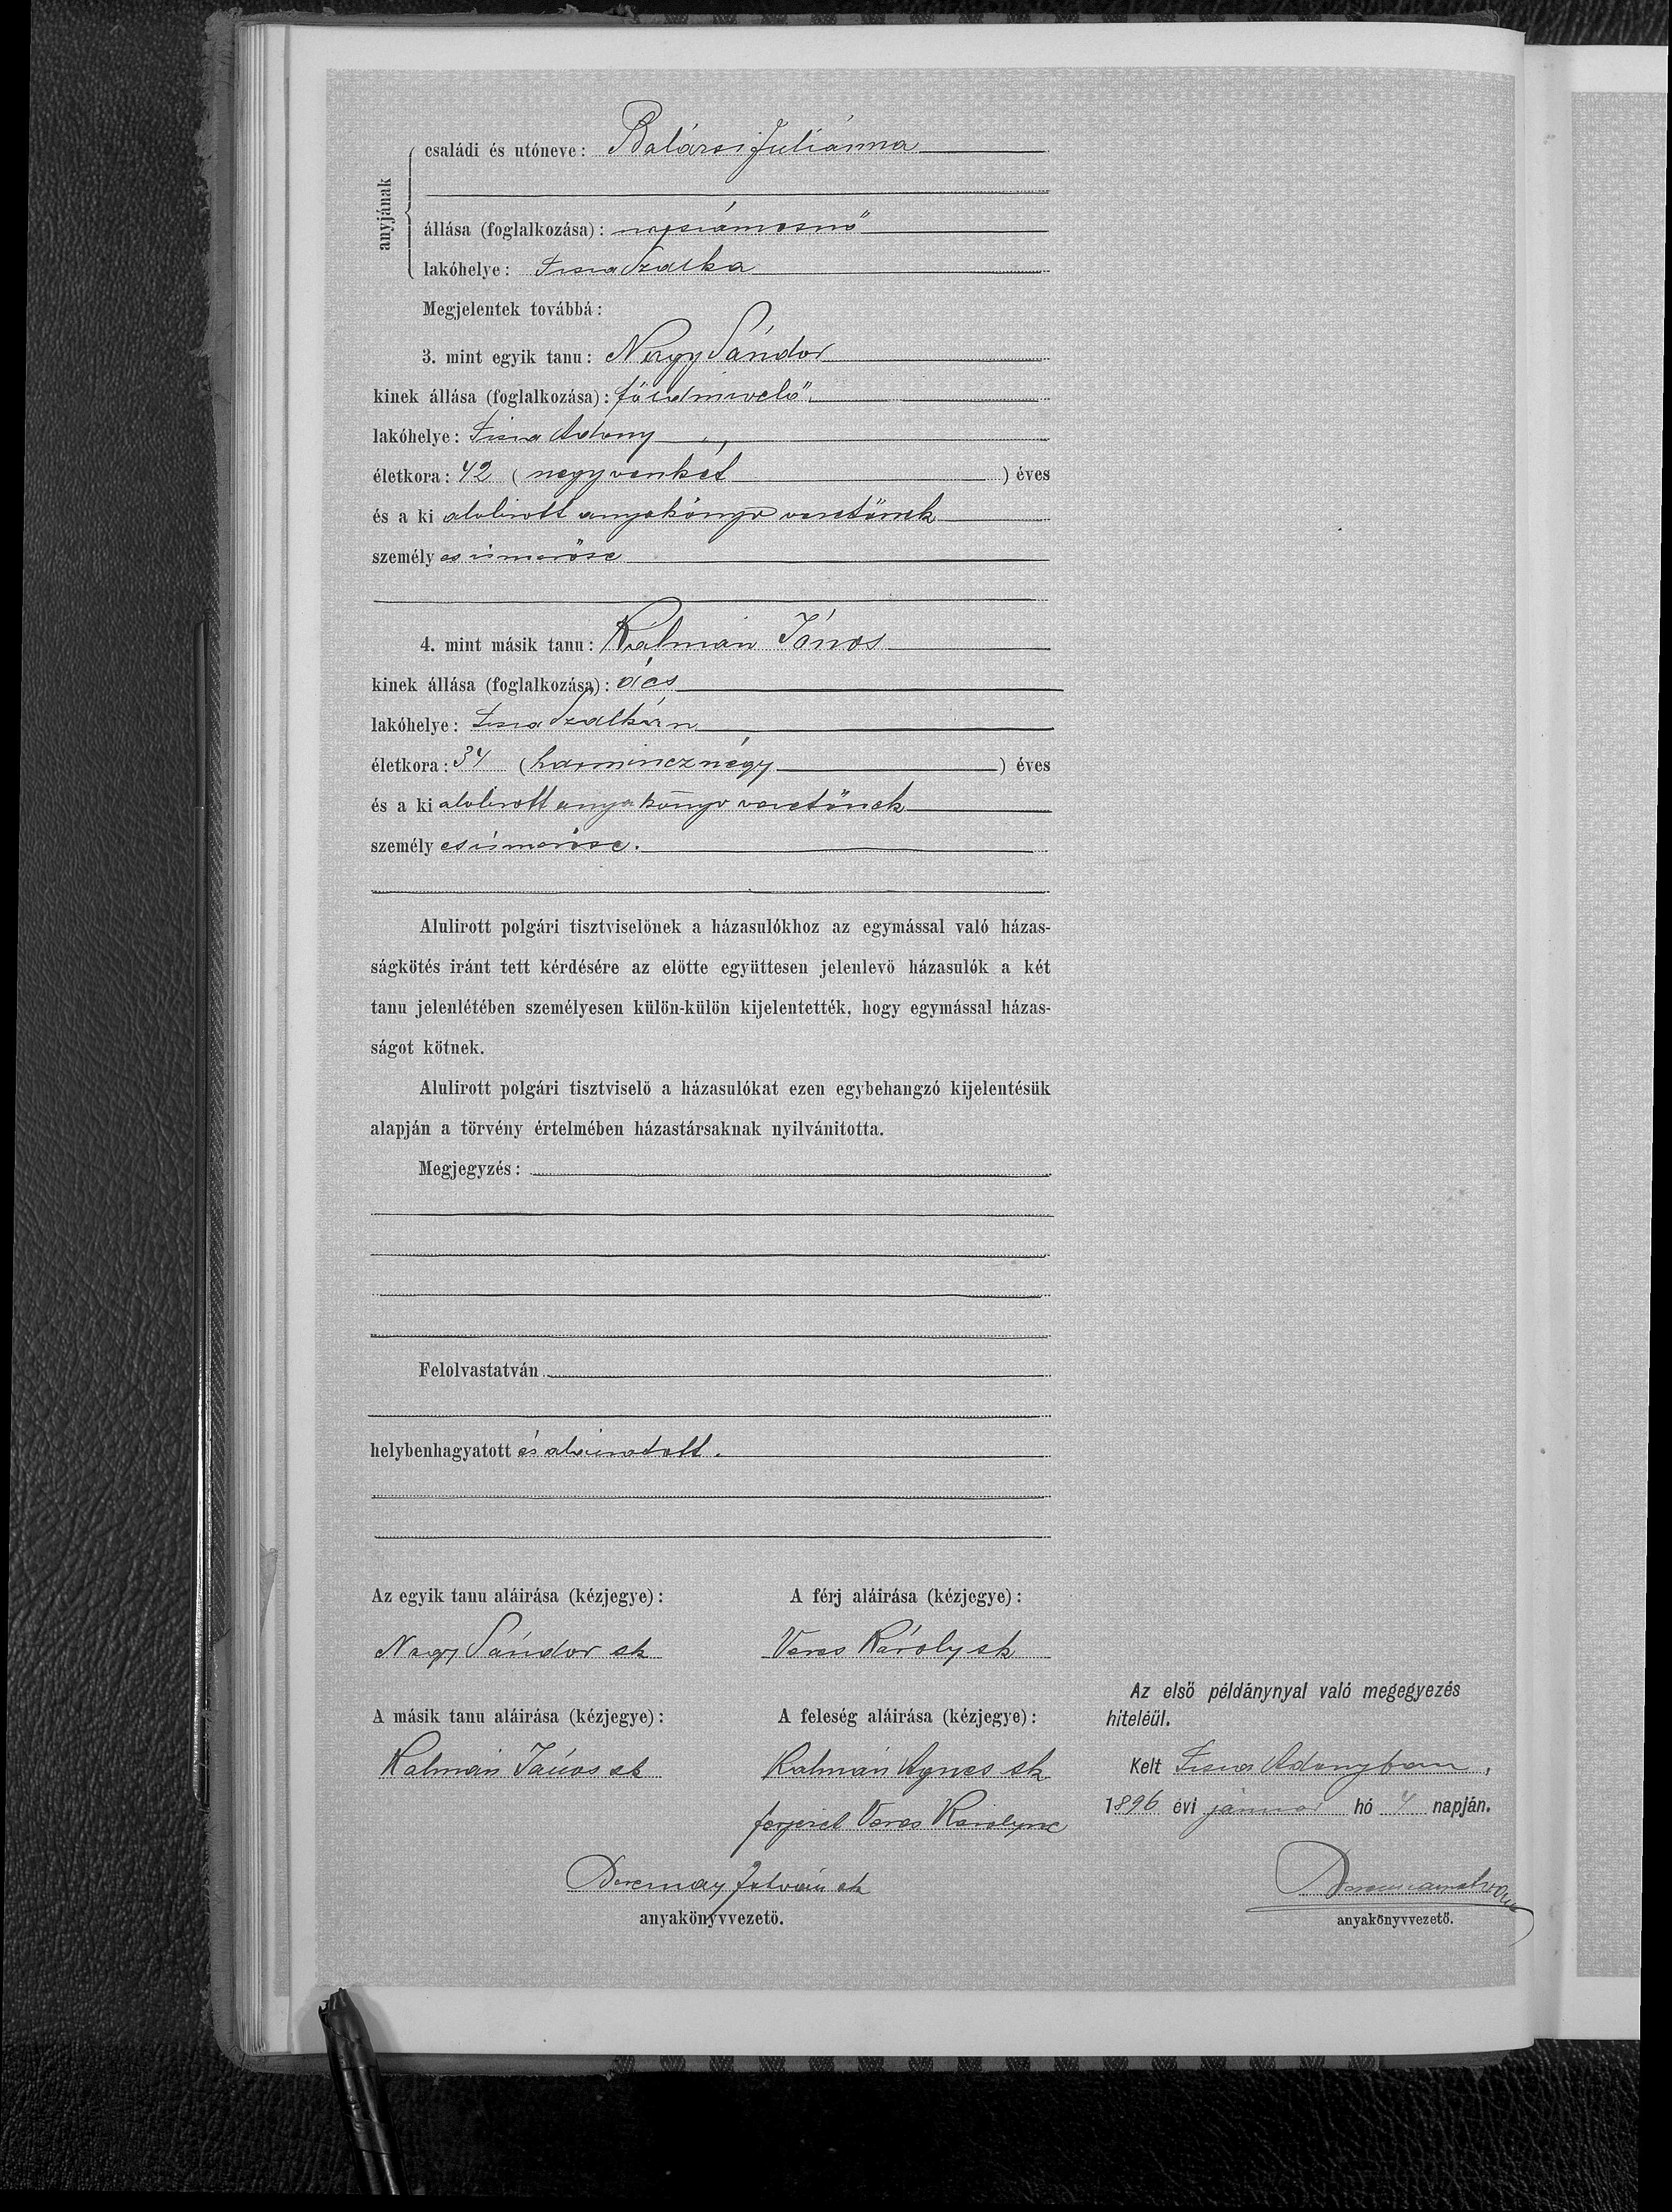 anyjának
családi és utóneve: Balázsi Juliánna
állása (foglalkozása): napszámosnő
lakóhelye: Tisza Szalka
Megjelentek továbbá:
3. mint egyik tanu: Nagy Sándor
kinek állása (foglalkozása): földmivelő
lakóhelye: Tisza Adony
életkora: 42 (negyvenkét) éves
és a ki alulirott anyakönyv vezetőnek
személyes ismerőse
4. mint másik tanu: Kálmán János
kinek állása (foglalkozása): ács
lakóhelye: Tisza Szalkán
életkora: 34 (harmincznégy) éves
és a ki alulirott anyakönyv vezetőnek
személyes ismerőse.
Alulirott polgári tisztviselönek a házasulókhoz az egymással való házas-
ságkötés iránt tett kérdésére az elötte együttesen jelenlevö házasulók a két
tanu jelenlétében személyesen külön-külön kijelentették, hogy egymással házas-
ságot kötnek.
Alulirott polgári tisztviselö a házasulókat ezen egybehangzó kijelentésük
alapján a törvény értelmében házastársaknak nyilvánitotta.
Megjegyzés:
Felolvastatván
helybenhagyatott és aláiratott.
Az egyik tanu aláirása (kézjegye): A férj aláirása (kézjegye):
Nagy Sándor sk Veres Károly sk
A másik tanu aláirása (kézjegye): A feleség aláirása (kézjegye):
Kalmán János sk Kalmán Ágnes sk
férjezet Veres Károlyné
István sk
anyakönyvvezetö.
Az elsö példánynyal való megegyezés
hiteléül.
Kelt Tisza Adonyban,
1896 évi január hó 4 napján.
anyakönyvvezetö.